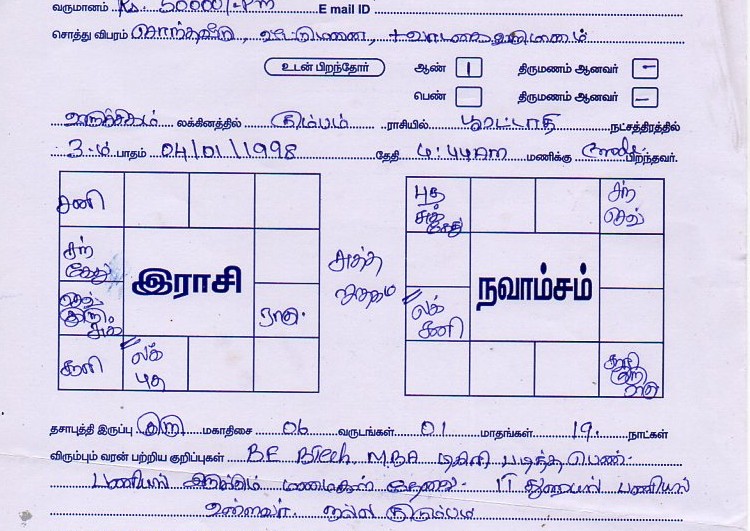 வருமானம் Rs. 50000/-Pm E mail ID
சொத்து விபரம் சொந்தவீடு, வீட்டுமனை, +
உடன் பிறந்தோர் ஆண் 1 திருமணம் ஆனவர் -
பெண் திருமணம் ஆனவர் -
விருச்சிகம் லக்கினத்தில் கும்பம் ராசியில் பூரட்டாதி நட்சத்திரத்தில்
3-ம் பாதம் 04/01/1998 தேதி AM மணிக்கு பிறந்தவர்.
சனி
சந் கேது
குரு சுக்
சூரி
லக் புத
ராகு
இராசி
அம்சம்
புத சுக் கேது
சந் செவ்
லக் சனி
சூரி குரு ராகு
நவாம்சம்
தசாபுத்தி இருப்பு குரு மகாதிசை 06 வருடங்கள் 01 மாதங்கள் 19 நாட்கள்
விரும்பும் வரன் பற்றிய குறிப்புகள் BE BTech, MBA டிகிரி படித்த பெண்.
பணியில் இருக்கும் மணமகள் தேவை. IT துறையில் பணியில்
உள்ளவர். நல்ல குடும்பம்